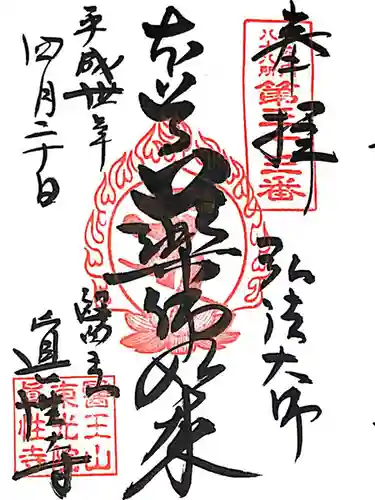 奉拝
八十八所第三十三番
弘法大師
本尊薬師如来
平成卅年
四月二十日
醫王山
眞性寺
醫王山
東光院
眞性寺